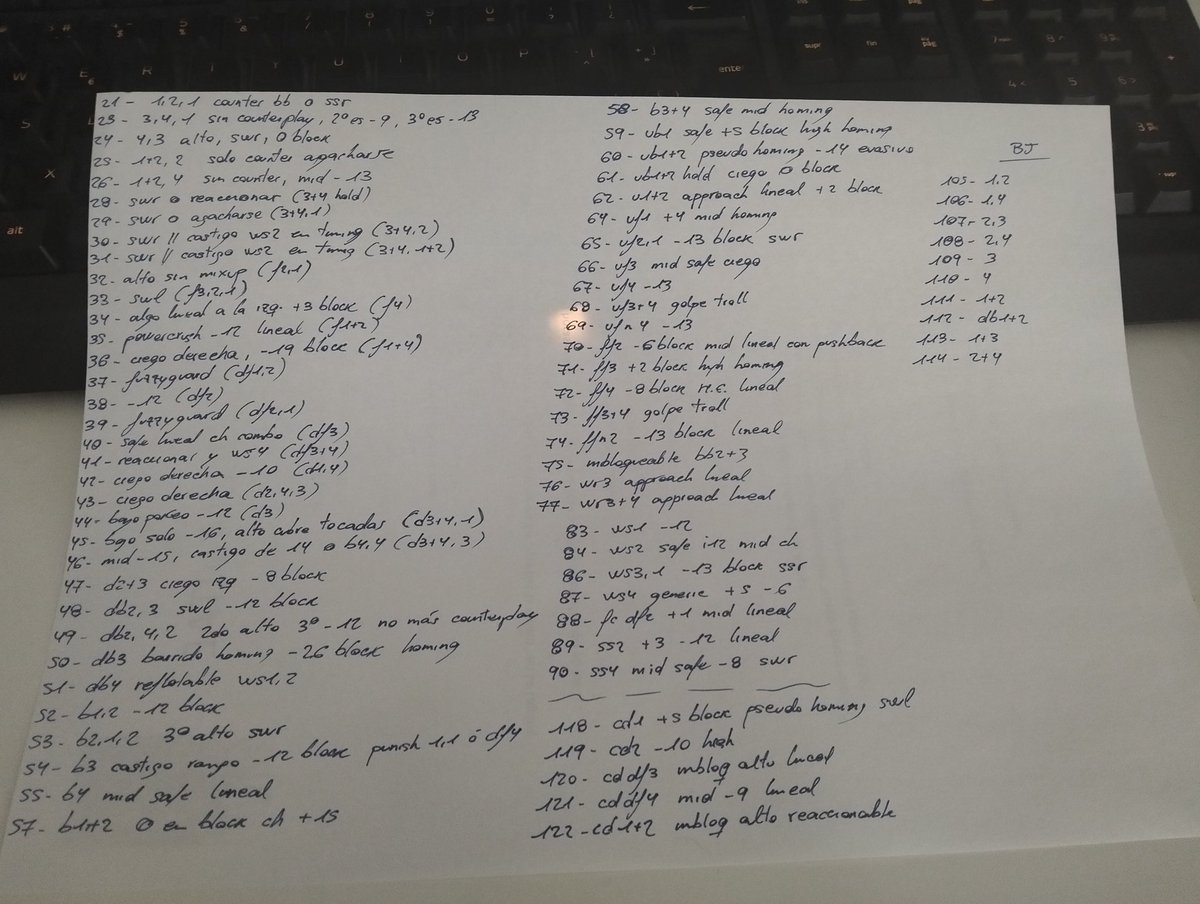 21- 1,2,1 counter bb o ssr
23- 3,4,1 sin counterplay, 2º es -9, 3º es -13
24- 4,3 alto, swr, 0 block
25- 1+2, 2 solo counter agacharse
26- 1+2, 4 sin counter, mid -13
28- swr o reaccionar (3+4 hold)
29- swr o agacharse (3+4,1)
30- swr // castigo ws2 en timing (3+4,2)
31- swr // castigo ws2 en timing (3+4, 1+2)
32- alto sin mixup (f2,1)
33- swl (f3,2,1)
34- algo lineal a la izq. +3 block (f4)
35- powercrush -12 lineal (f1+2)
36- ciego derecha, -19 block (f1+4)
37- fuzzyguard (df1,2)
38- -12 (df2)
39- fuzzyguard (df2,1)
40- safe lineal ch combo (df3)
41- reaccionar y ws4 (df3+4)
42- ciego derecha -10 (d1,4)
43- ciego derecha (d2,4,3)
44- bajo parseo -12 (d3)
45- bajo solo -16, alto cubre tocadas (d3+4,1)
46- mid -15, castigo de 14 o b4,4 (d3+4,3)
47- d2+3 ciego izq -8 block
48- db2,3 swl -12 block
49- db2,4,2 2do alto 3º -12 no más counterplay
50- db3 barrido homing -26 block homing
51- db4 reflotable ws1,2
52- b1,2 -12 block
53- b2,1,2 3º alto swr
54- b3 castigo rango -12 block punish 1,1 ó df4
55- b4 mid safe lineal
57- b1+2 0 en block ch +15
58- b3+4 safe mid homing
59- ub1 safe +5 block high homing
60- ub1+2 pseudo homing -14 evasivo
61- ub1+2 hold ciego 0 block
62- u1+2 approach lineal +2 block
64- uf1 +4 mid homing
65- uf2,1 -13 block swr
66- uf3 mid safe ciego
67- uf4 -13
68- uf3+4 golpe troll
69- ufn4 -13
70- ff2 -6 block mid lineal con pushback
71- ff3 +2 block high homing
72- ff4 -8 block H.E. lineal
73- ff3+4 golpe troll
74- ffn2 -13 block lineal
75- inbloqueable bb2+3
76- wr3 approach lineal
77- wr3+4 approach lineal
83- ws1 -12
84- ws2 safe i12 mid ch
86- ws3,1 -13 block ssr
87- ws4 generic +5 -6
88- fc df2 +1 mid lineal
89- ss2 +3 -12 lineal
90- ss4 mid safe -8 swr
118- cd1 +5 block pseudo homing swl
119- cd2 -10 high
120- cd df3 inbloq alto lineal
121- cd df4 mid -9 lineal
122- cd1+2 inbloq alto reaccionable
BJ
105- 1,2
106- 1,4
107- 2,3
108- 2,4
109- 3
110- 4
111- 1+2
112- db1+2
113- 1+3
114- 2+4